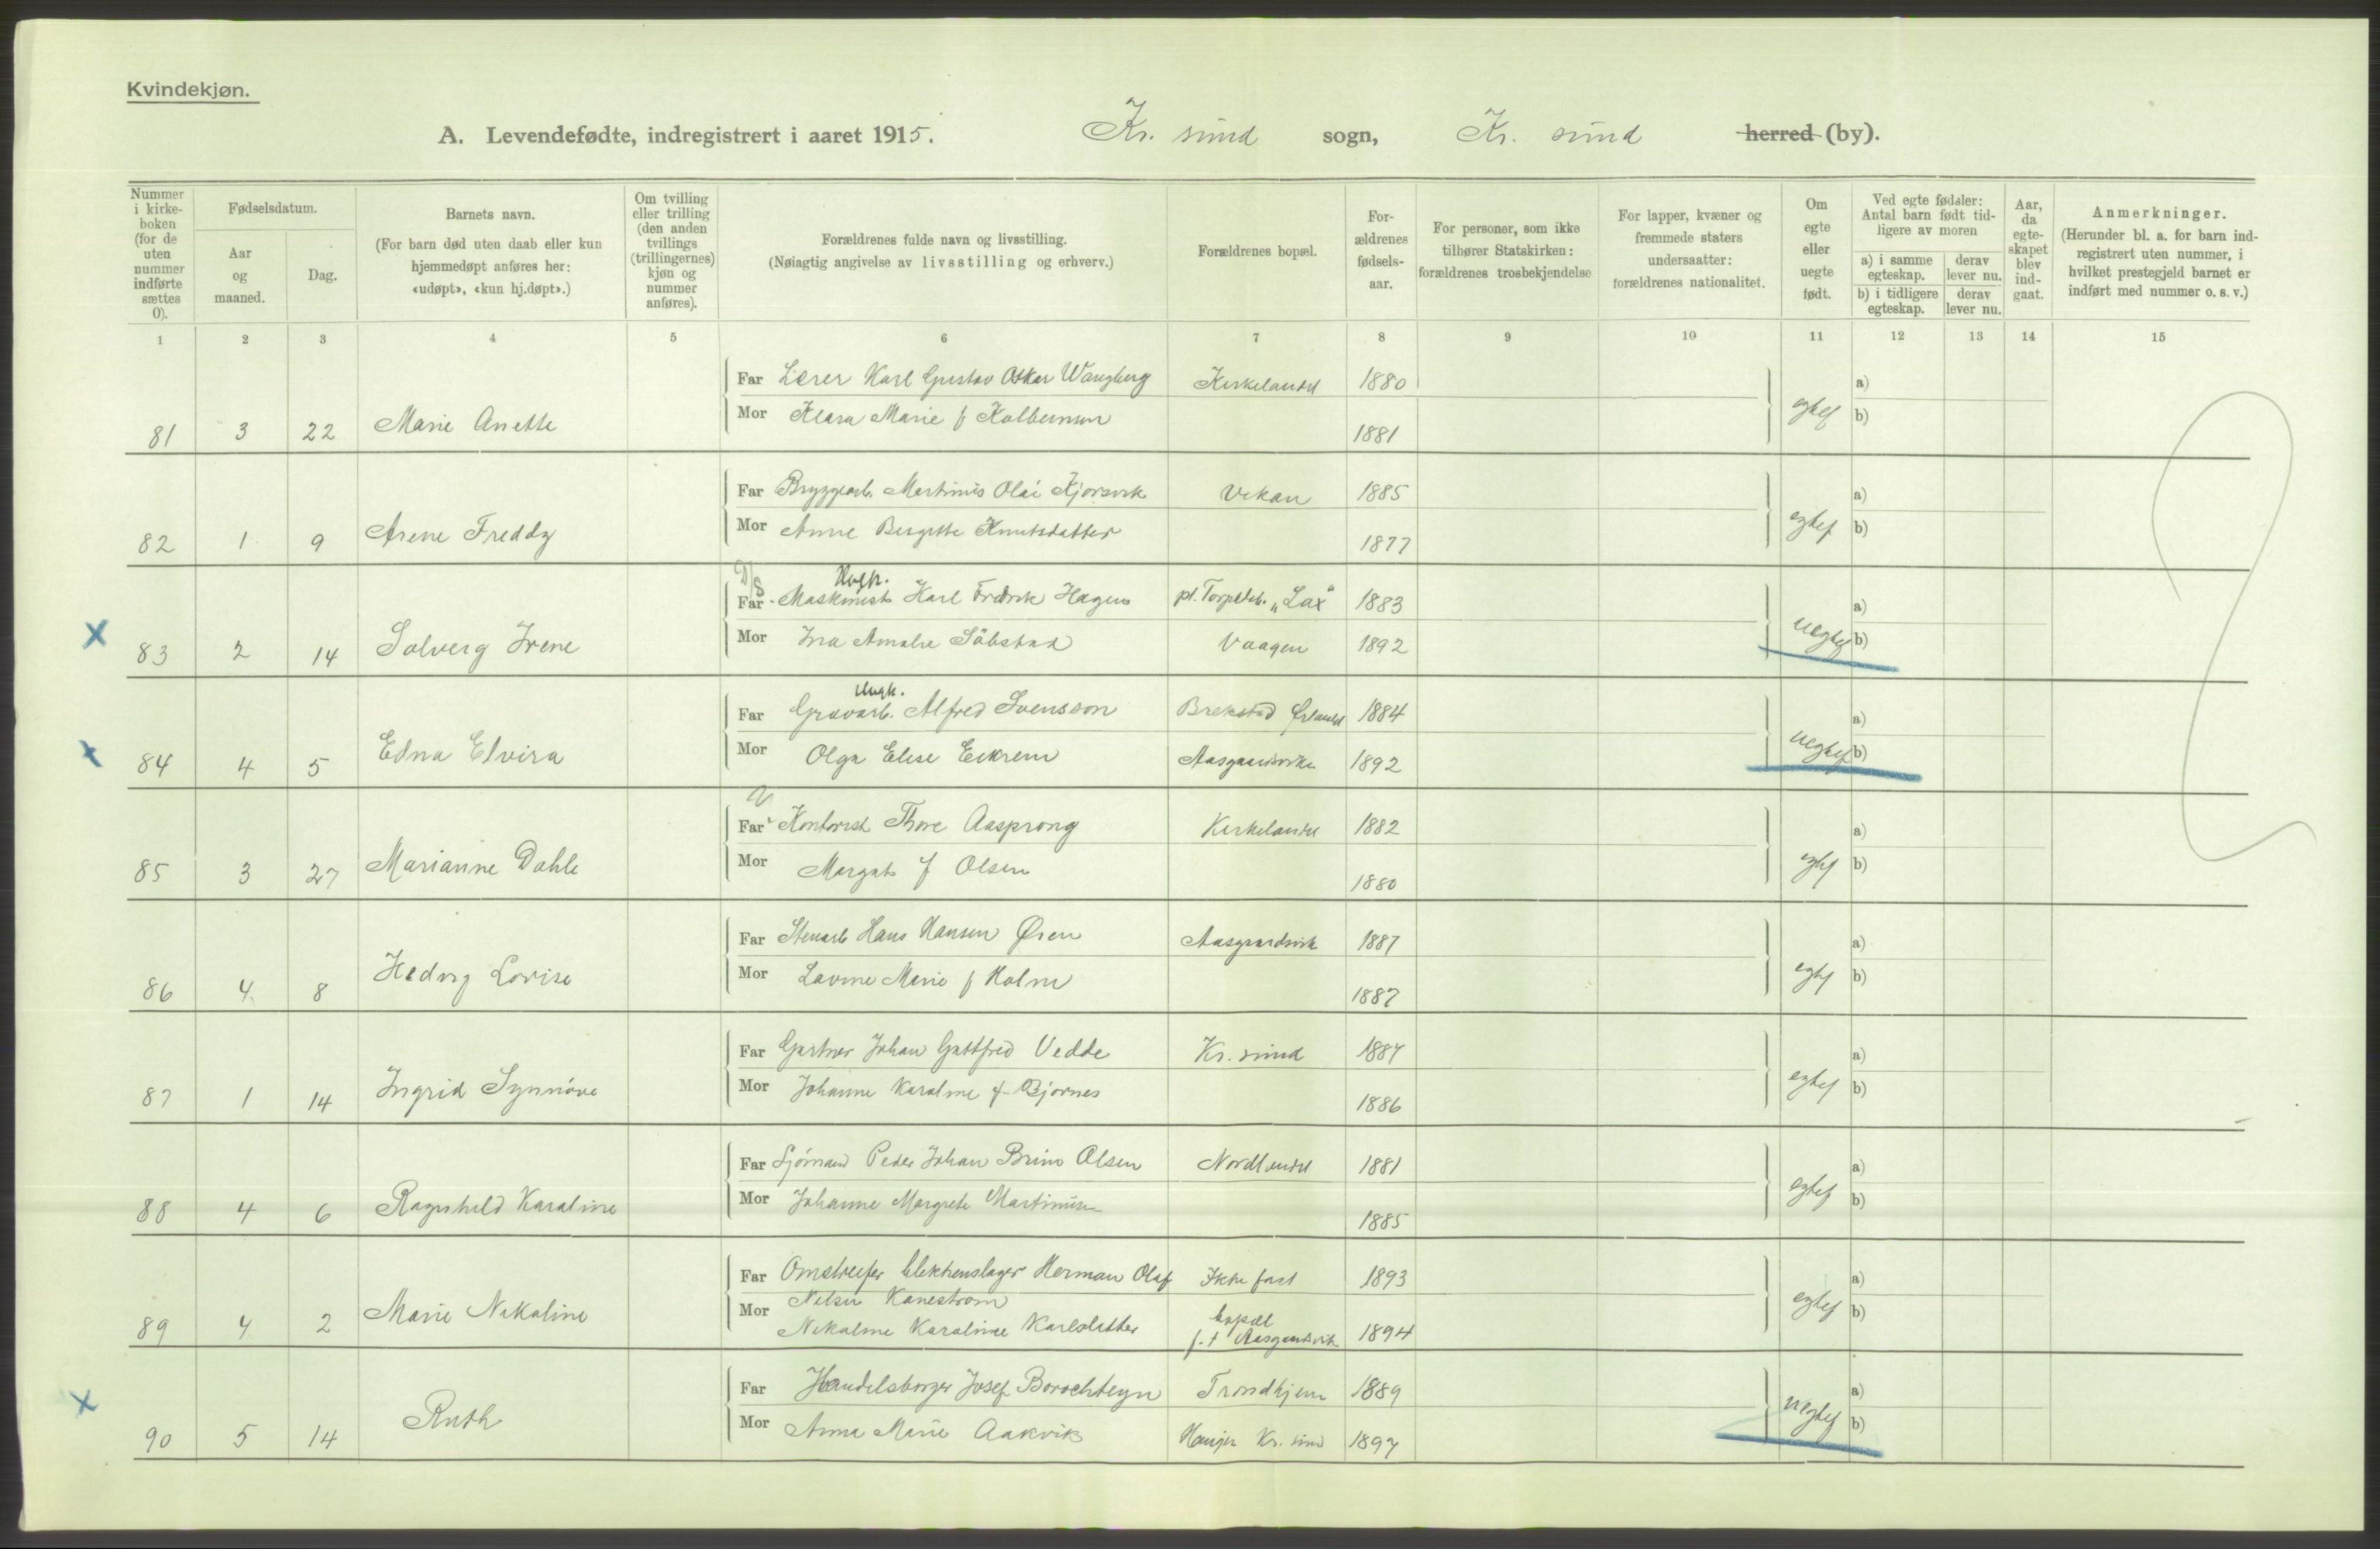 Kvindekjøn.
A. Levendefødte, indregistrert i aaret 1915. Kr. sund sogn, Kr. sund herred (by).
Nummer i kirke-boken (for de uten nummer indførte sættes 0).
Fødselsdatum.
Aar og maaned.
Dag.
Barnets navn.
(For barn død uten daab eller kun hjemmedøpt anføres her: «udøpt», «kun hj.døpt».)
Om tvilling eller trilling (den anden tvillings (trillingernes) kjøn og nummer anføres).
Forældrenes fulde navn og livsstilling.
(Nøiagtig angivelse av livsstilling og erhverv.)
Forældrenes bopæl.
For-ældrenes fødsels-aar.
For personer, som ikke tilhører Statskirken: forældrenes trosbekjendelse
For lapper, kvæner og fremmede staters undersaatter: forældrenes nationalitet.
Om egte eller uegte født.
Ved egte fødsler: Antal barn født tid-ligere av moren
a) i samme egteskap.
derav lever nu.
b) i tidligere egteskap.
derav lever nu.
Aar, da egte-skapet blev ind-gaat.
Anmerkninger.
(Herunder bl. a. for barn ind-registrert uten nummer, i hvilket prestegjeld barnet er indført med nummer o. s. v.)
1 2 3 4 5 6 7 8 9 10 11 12 13 14 15
Far Lærer Karl Gustav Oskar Wangberg Kirkelandet 1880 a)
81 3 22 Marie Anette Mor Klara Marie f 1881 egtef b)
Far Bryggearb. Martinus Olai Kjorsvik Vikan 1885 a)
82 1 9 Arene Freddy Mor Anne Bergitte Knutsdatter 1877 egtef b)
Ungk.
Far Maskinist Karl Fredrik Hagen pt. Torpedob. „Lax" 1883 a)
83 2 14 Solveig Irene Mor Ina Amalie Söbstad Vaagen 1892 uegtef b)
Ungk.
Far Gravarb. Alfred Svensson Brekstad Ørlandet 1884 a)
84 4 5 Edna Elvira Mor Olga Elise Eikrem Aasgaardsvik 1892 uegtef b)
Far Kontorist Thore Aasprong Kirkelandet 1882 a)
85 3 27 Marianne Dahle Mor Margit f Olsen 1880 egtef b)
Far Stenarb Hans Hansen Øien Aasgaardsvik 1887 a)
86 4 8 Hedvig Lovise Mor Lavine Marie f Holm 1887 egtef b)
Far Gartner Johan Gottfred Vedde Kr. sund 1884 a)
87 1 14 Ingrid Synnöve Mor Johanne Karoline f. Bjørnes 1886 egtef b)
Far Sjømand Peder Johan Brun Olsen Nordlandet 1881 a)
88 4 6 Ragnhild Karoline Mor Johanne Margrete Martinsen 1885 egtef b)
Far Omstreifer blikkenslager Herman Olaf Ikke fast 1893 a)
89 4 2 Marie Nikoline Mor Nilsen Kanestrøm bopæl egtef b)
Nikoline Karoline Karlsdatter f.t Aasgaardsvik 1894
Far Handelsborger Josef Borochteyn Trondhjem 1889 a)
90 5 14 Ruth Mor Anna Marie Aakvik Kr. sund 1897 uegtef b)